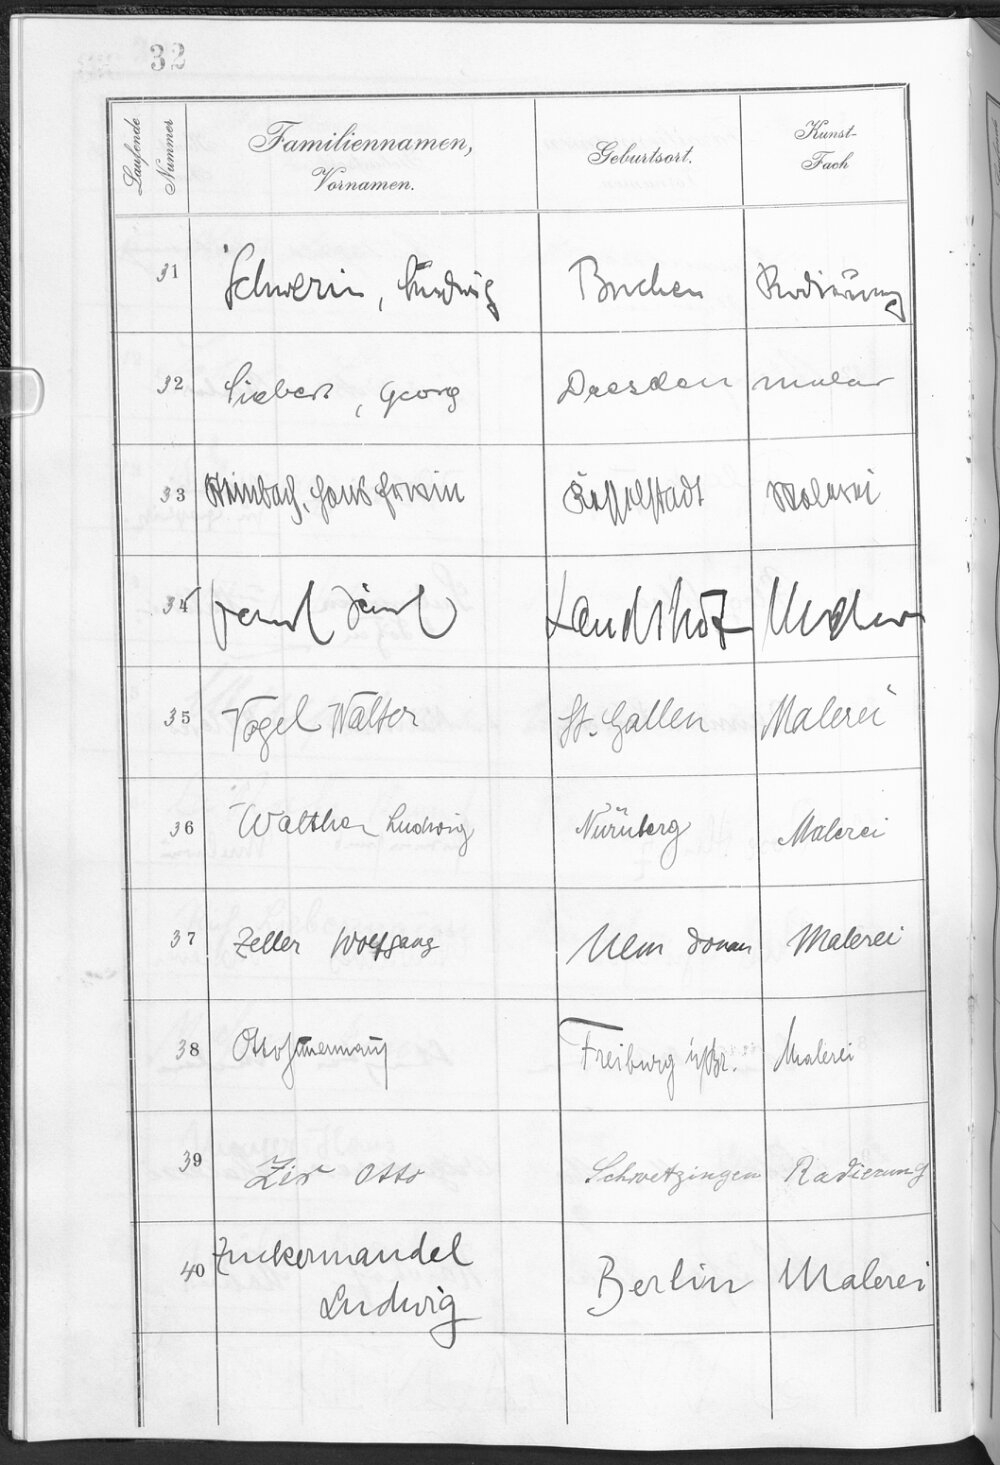 32
Laufende Nummer
Familiennamen, Vornamen.
Geburtsort.
Kunst-Fach
31 Schwerin, Ludwig Buchen Radierung
32 Siebert, Georg Dresden Maler
33 Steinbach, Hans Erwin Kesselstadt Malerei
34 Landshut
35 Vogel Walter St. Gallen Malerei
36 Walther Ludwig Nürnberg Malerei
37 Zeller Wolfgang Ulm Donau Malerei
38 Otto Freiburg i/Br. Malerei
39 Zis Otto Schwetzingen Radierung
40 Zuckermandel Berlin Malerei
Ludwig